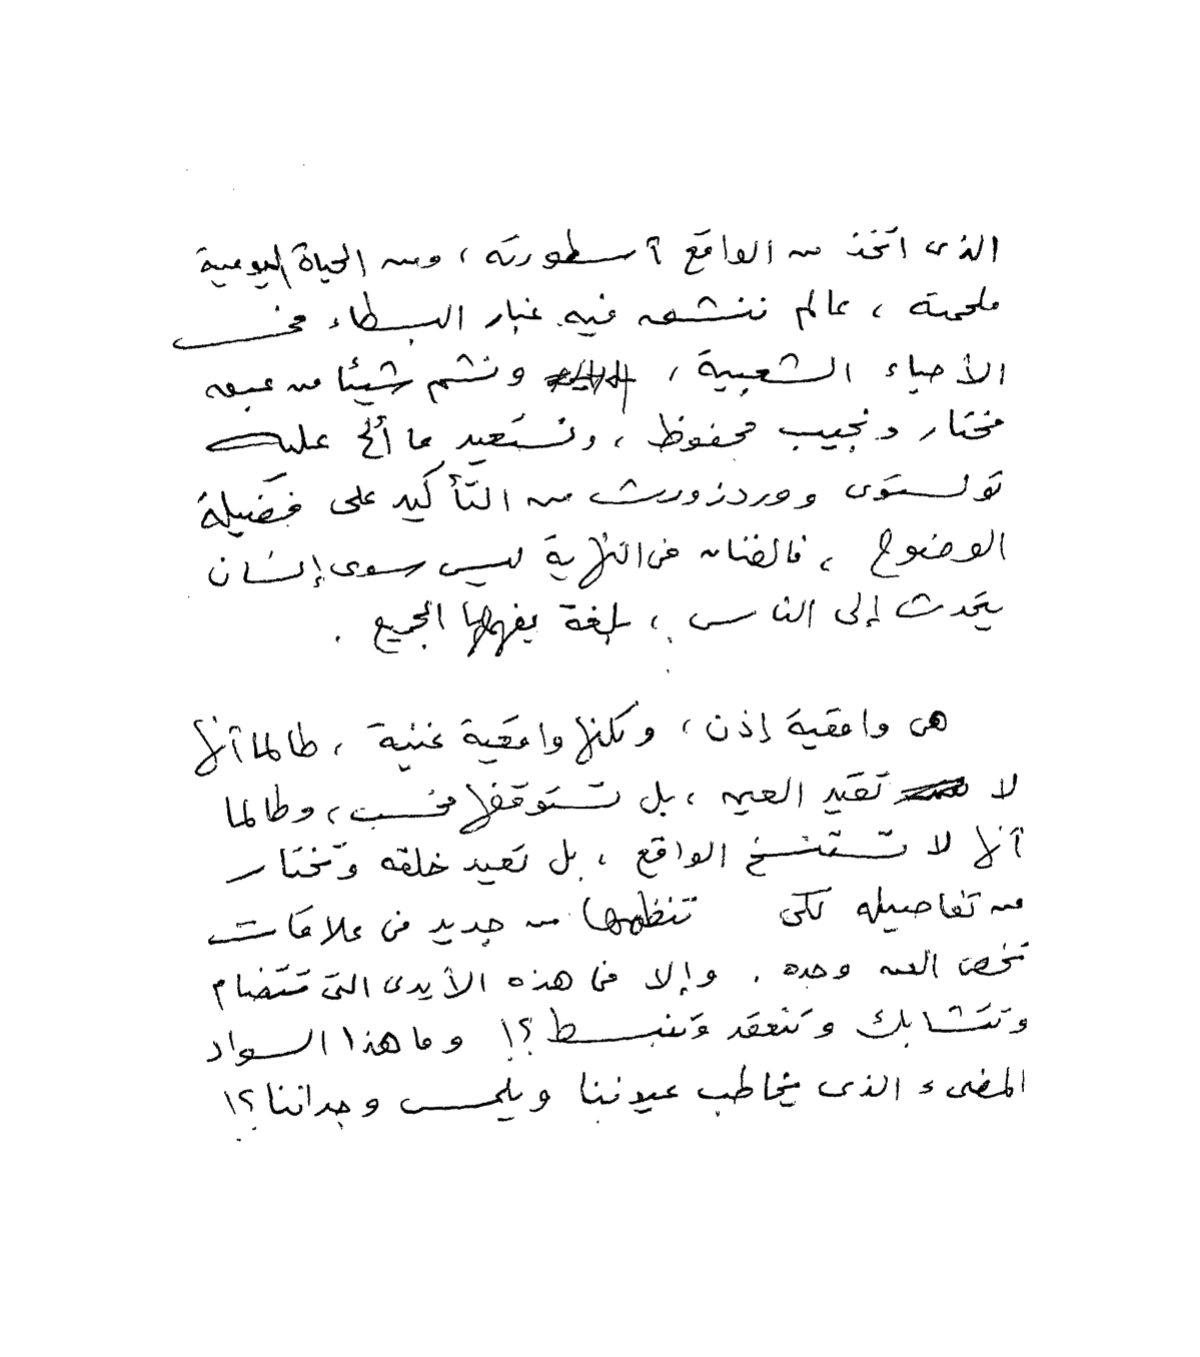 الذى اتخذ من الواقع أسطورته ، ومن الحياة اليومية
ملحمته ، عالم ننشق فيه غبار البسطاء فى
الأحياء الشعبية ، ونشم شيئا من عبق
مختار ونجيب محفوظ ، ونستعيد ما ألح عليه
تولستوى ووردزورث من التأكيد على فضيلة
الوضوح ، فالفنان فى النهاية ليس سوى إنسان
يتحدث إلى الناس ، بلغة يفهمها الجميع .
هى واقعية إذن ، ولكنها واقعية غنية ، طالما أنها
لا تقيد العين ، بل تستوقفها فحسب ، وطالما
أنها لا تستنسخ الواقع ، بل تعيد خلقه وتختار
من تفاصيله لكى تنظمها من جديد فى علاقات
تخص الفن وحده . وإلا فما هذه الأيدى التى تتضام
وتتشابك وتنعقد وتنبسط ؟! وما هذا السواد
المضىء الذى يخاطب عيوننا ويلمس وجداننا ؟!